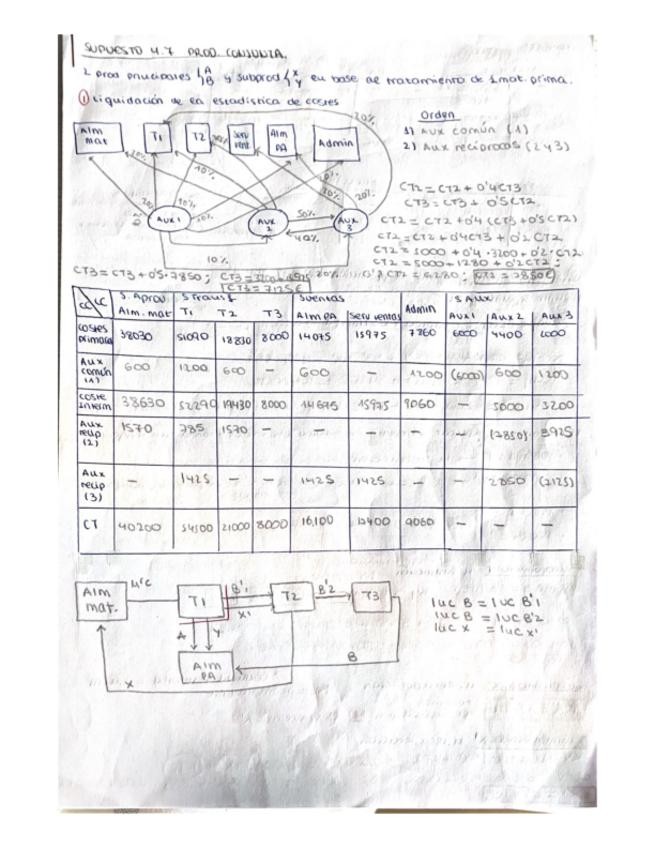 SUPUESTO 4.7 PROD. CONJUNTA.
2 prod principales {A B y subprod {X Y en base al tratamiento de 1 mat. prima.
① Liquidación de la estadística de costes
Orden
1) Aux común (1)
2) Aux recíprocos (2 y 3)
20%
Alm mat
T1
T2
Serv vent
Alm PA
Admin
20%
40%
10%
20%
20%
Aux 1
Aux 2
Aux 3
50%
40%
10%
20%
CT2 = CT2 + 0'4 CT3
CT3 = CT3 + 0'5 CT2
CT2 = CT2 + 0'4 (CT3 + 0'5 CT2)
CT2 = CT2 + 0'4 CT3 + 0'2 CT2
CT2 = 5000 + 0'4 · 3200 + 0'2 · CT2
CT2 = 5000 + 1280 + 0'2 CT2;
CT2 = 6280; CT2 = 7850€
CT3 = CT3 + 0'5 · 7850; CT3 = 3200 + 3925
CT3 = 7125€
CC LC
S. Aprov
S Transf
S Ventas
Admin
S Aux
Alm. mat T1 T2 T3 Alm PA Serv ventas Aux 1 Aux 2 Aux 3
Costes primarios 38030 51090 18830 8000 14075 15975 7860 6000 4400 2000
Aux común (1) 600 1200 600 – 600 – 1200 (6000) 600 1200
Coste interm 38630 52290 19430 8000 14675 15975 9060 – 5000 3200
Aux recip (2) 1570 785 1570 – – – – – (7850) 3925
Aux recip (3) – 1425 – – 1425 1425 – 2850 (7125)
CT 40200 54500 21000 8000 16.100 17400 9060 – – –
Alm mat.
M'C
T1
B'1
X'
T2
B'2
T3
A
Y
Alm PA
B
X
1uc B = 1uc B'1
1uc B = 1uc B'2
1uc X = 1uc X'